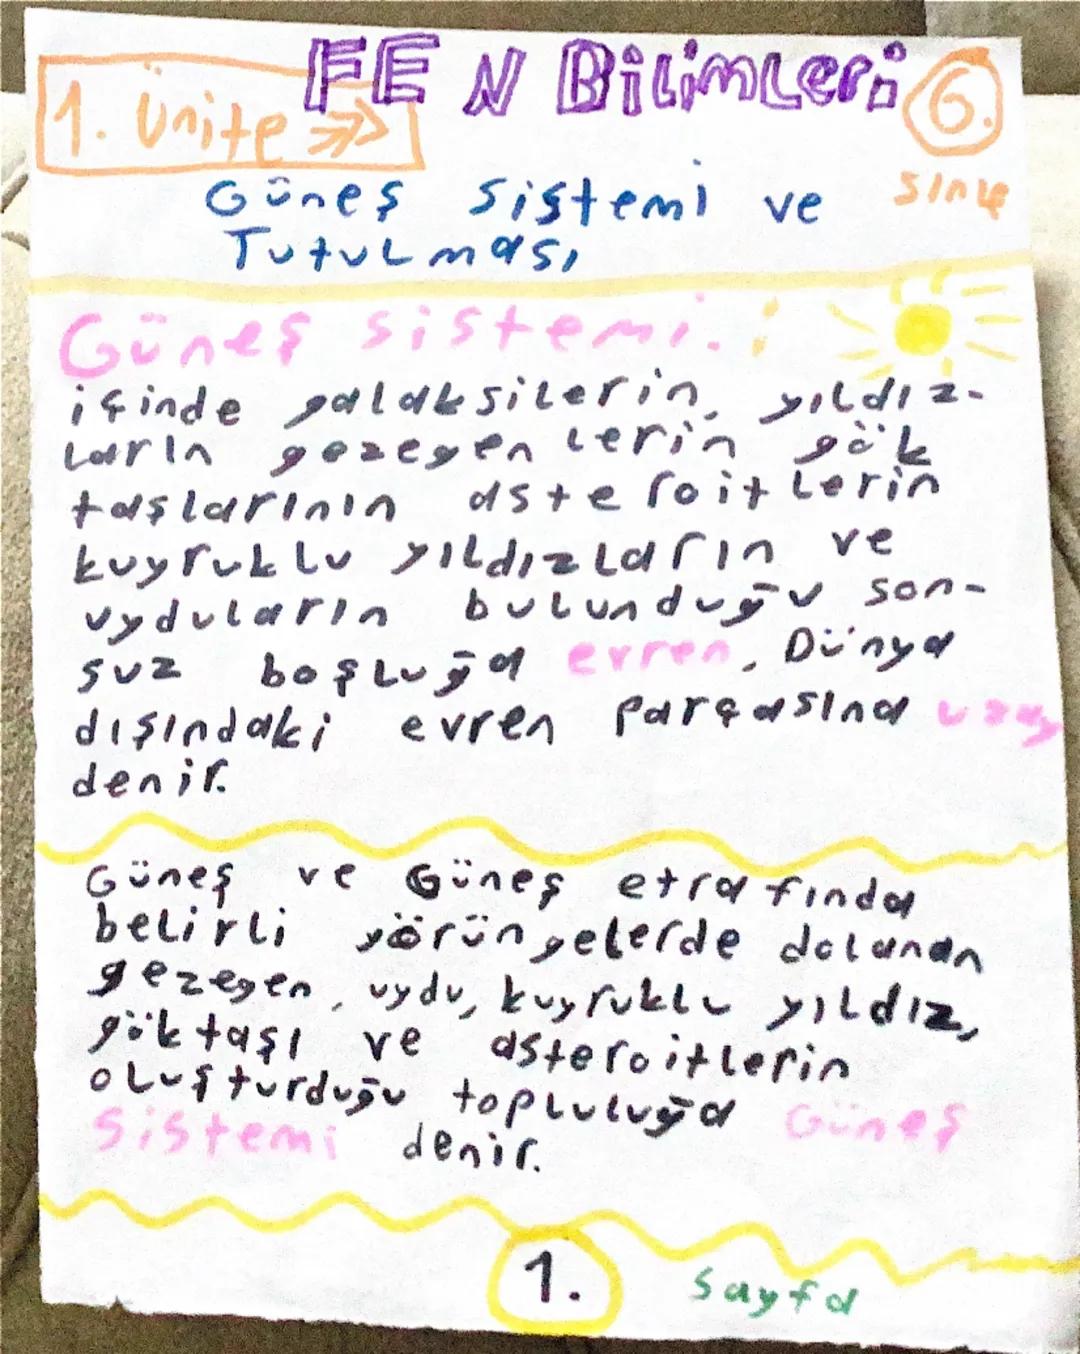 FEN Bilimleri
1. Ünite >>> 6.
sınıf
Güneş sistemi ve
Tutulması
Güneş sistemi. :
içinde galaksilerin, yıldız-
ların gezegenlerin gök
taşlarının asteroitlerin
kuyruklu yıldızların ve
uyduların bulunduğu son-
suz boşluğa evren, Dünya
dışındaki evren parçasına uzay
denir.
Güneş ve Güneş etrafında
belirli yörüngelerde dolanan
gezegen, uydu, kuyruklu yıldız,
göktaşı ve asteroitlerin
oluşturduğu topluluğa Güneş
Sistemi denir.
1. Sayfa